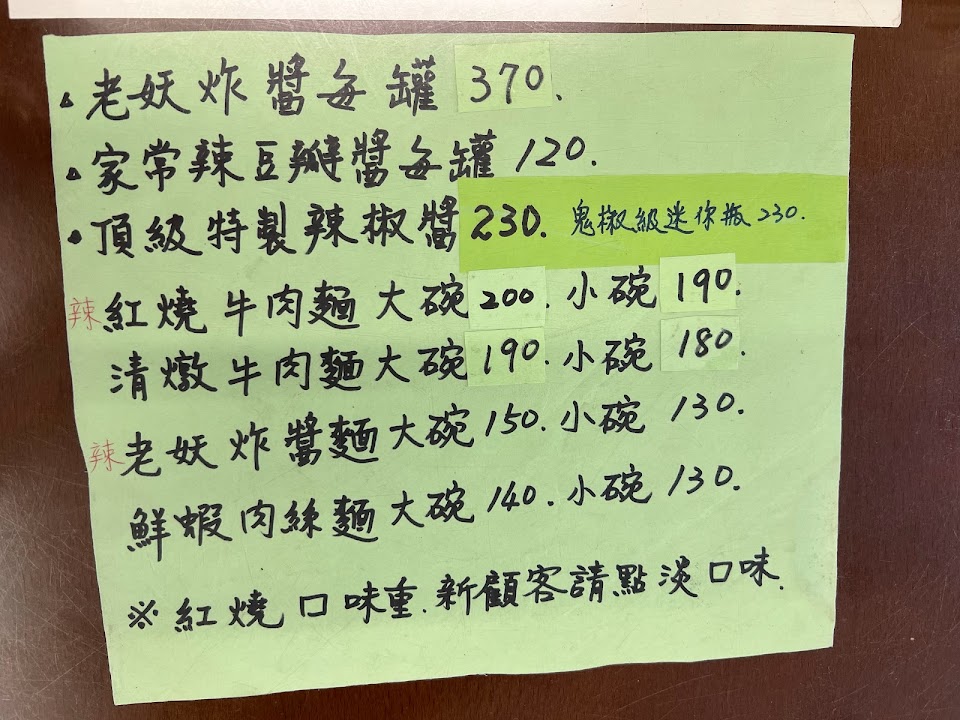 老妖炸醬每罐 370.
家常辣豆瓣醬每罐 120.
頂級特製辣椒醬 230. 鬼椒級迷你瓶 230.
辣 紅燒牛肉麵大碗 200. 小碗 190.
清燉牛肉麵大碗 190. 小碗 180.
辣 老妖炸醬麵大碗 150. 小碗 130.
鮮蝦肉絲麵大碗 140. 小碗 130.
※紅燒口味重.新顧客請點淡口味.